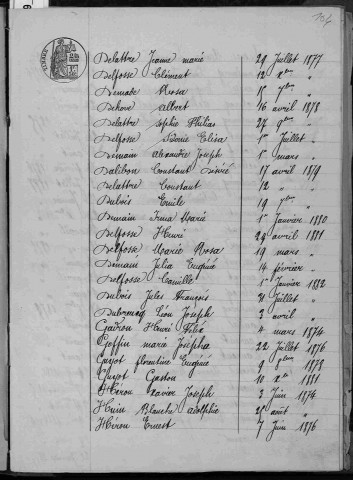 104
Delattre Jeanne marie 29 Juillet 1877
Delfosse Clément 12 Xbre "
Demade Rosa 15 7bre "
Dehove Albert 16 avril 1878
Delattre Sophie Philias 24 9bre "
Delfosse Elisa 1er Juillet "
Demain Alexandre Joseph 1er mars "
Dalibon Constant Désiré 17 avril 1879
Delattre Constant 12 " "
Dubois Emile 19 7bre "
Demain Irma Marie 1er Janvier 1880
Delfosse Henri 29 avril 1881
Delfosse Marie Rosa 19 mars "
Demain Julia Eugénie 14 février "
Delfosse Camille 1er Janvier 1882
Dubois Jules François 21 Juillet "
Léon Joseph 3 avril "
Henri Félix 4 mars 1874
Goffin marie Josépha 22 Juillet 1876
Guyot florentine Eugénie 9 8bre 1878
Guyot Gaston 10 Xbre 1881
Héron Xavier Joseph 3 Juin 1874
Huin Blanche Adolphie 25 août "
Héron Ernest 7 Juin 1876